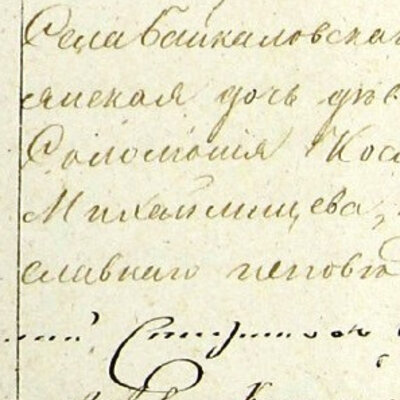 Села Байкаловскаг
янская дочь дѣв
Соломонія Косм
Михайлищева,
славнаго исповѣ